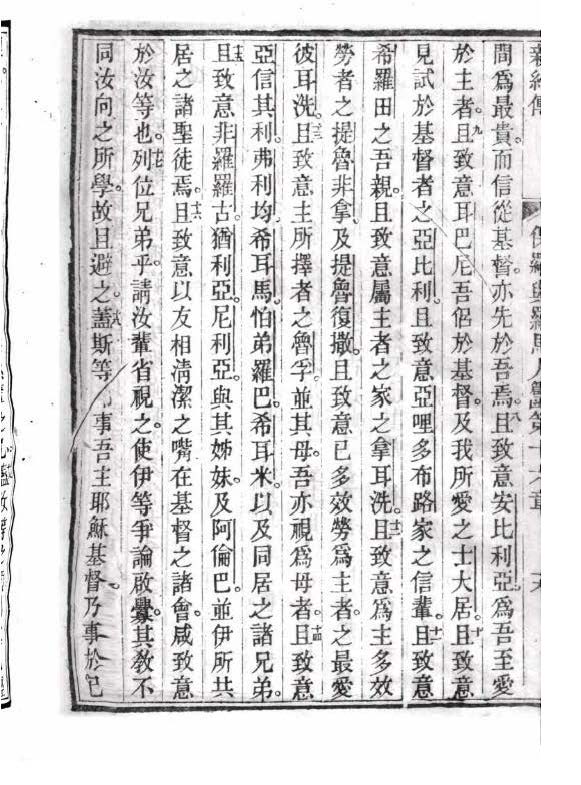 新約傳 羅與羅馬人書第十六章
間爲最貴。而信從基督。亦先於吾焉。八且致意安比利亞。爲吾至愛
於主者。九且致意耳巴尼吾侶於基督。及我所愛之士大居。十且致意
見試於基督者之亞比利。且致意亞哩多布路家之信輩。十一且致意
希羅田之吾親。且致意屬主者之家之拿耳洗。十二且致意爲主多效
勞者之提魯非拿。及提魯復撒。且致意已多效勞爲主者。之最愛
彼耳洗。十三且致意主所擇者之魯孚。並其母。吾亦視爲母者。十四且致意
亞信其利。弗利均。希耳馬。怕弟羅巴。希耳米。以及同居之諸兄弟。
十五且致意非羅羅古。猶利亞。尼利亞。與其姊妹。及阿倫巴。並伊所共
居之諸聖徒焉。十六且致意以友相淸潔之嘴。在基督之諸會。咸致意
於汝等也。十七列位兄弟乎。請汝輩省視之。使伊等爭論啟釁。其教不
同汝向之所學。故且避之。十八蓋斯等事吾主耶穌基督。乃事於己